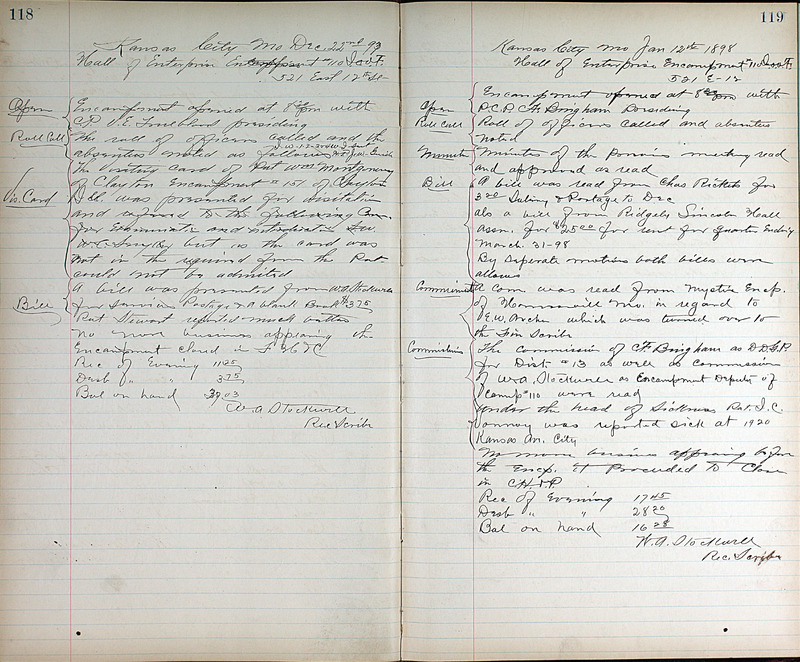 118
Kansas City Mo Dec. 22nd 97
Hall of Enterprise Encampment #110 I.O.O.F.
521 East 12th St
Open Encampment opened at 8 pm with
C.P. J.E. presiding
Roll Call The roll of officers called and the
absentees noted as follows
The Visiting card of Pat Wm Montgomery
Vis. Card of Clayton Encampment # 151 of Clayton
Ill. was presented for visitation
and referred to the following Com.
for Examination and
but as the card was
not in the required form the Pat
could not be admitted
Bill A bill was presented from W.A. Stockwell
for Services Postage & a blank Book $3.75
Pat Stewart reported much better
no more business appearing the
Encampment closed in F H & C
Rec of Evening 11.25
Disb " " 3.75
Bal on hand
W.A. Stockwell
Rec Scribe
119
Kansas City Mo Jan 12th 1898
Hall of Enterprise Encampment #110 I.O.O.F.
521 E-12
Encampment opened at 8 pm with
Open P.C.P. C.F. Bingham Presiding
Roll Call Roll of officers called and absentees
noted
Minutes Minutes of the Previous meeting read
and approved as read
Bill A bill was read from Chas Ricketts for
& Postage to Dec
als a bill from Ridgely Lincoln Hall
Assn. for $25.00 for rent for quarter Ending
March 31-98
By Seperate motions both bills were
allowed
A com was read from Mystic Encp.
of Mo. in regard to
E.W. Archer which was turned over to
the Fin Scribe
The commission of C.F. Bingham as D.D.G.P.
for Dist. #13 as well as commission
of W.A. Stockwell as Encampment Deputy of
Camp #110 were read
Under the head of Sickness Pat. J.C.
was reported sick at 1920
Kansas Av. City
No more business appearing before
the Encp. it Proceeded to Close
in F.H.&P.
Rec of Evening 17.45
Disb " " 28.20
Bal on hand 16.28
W.A. Stockwell
Rec. Scribe